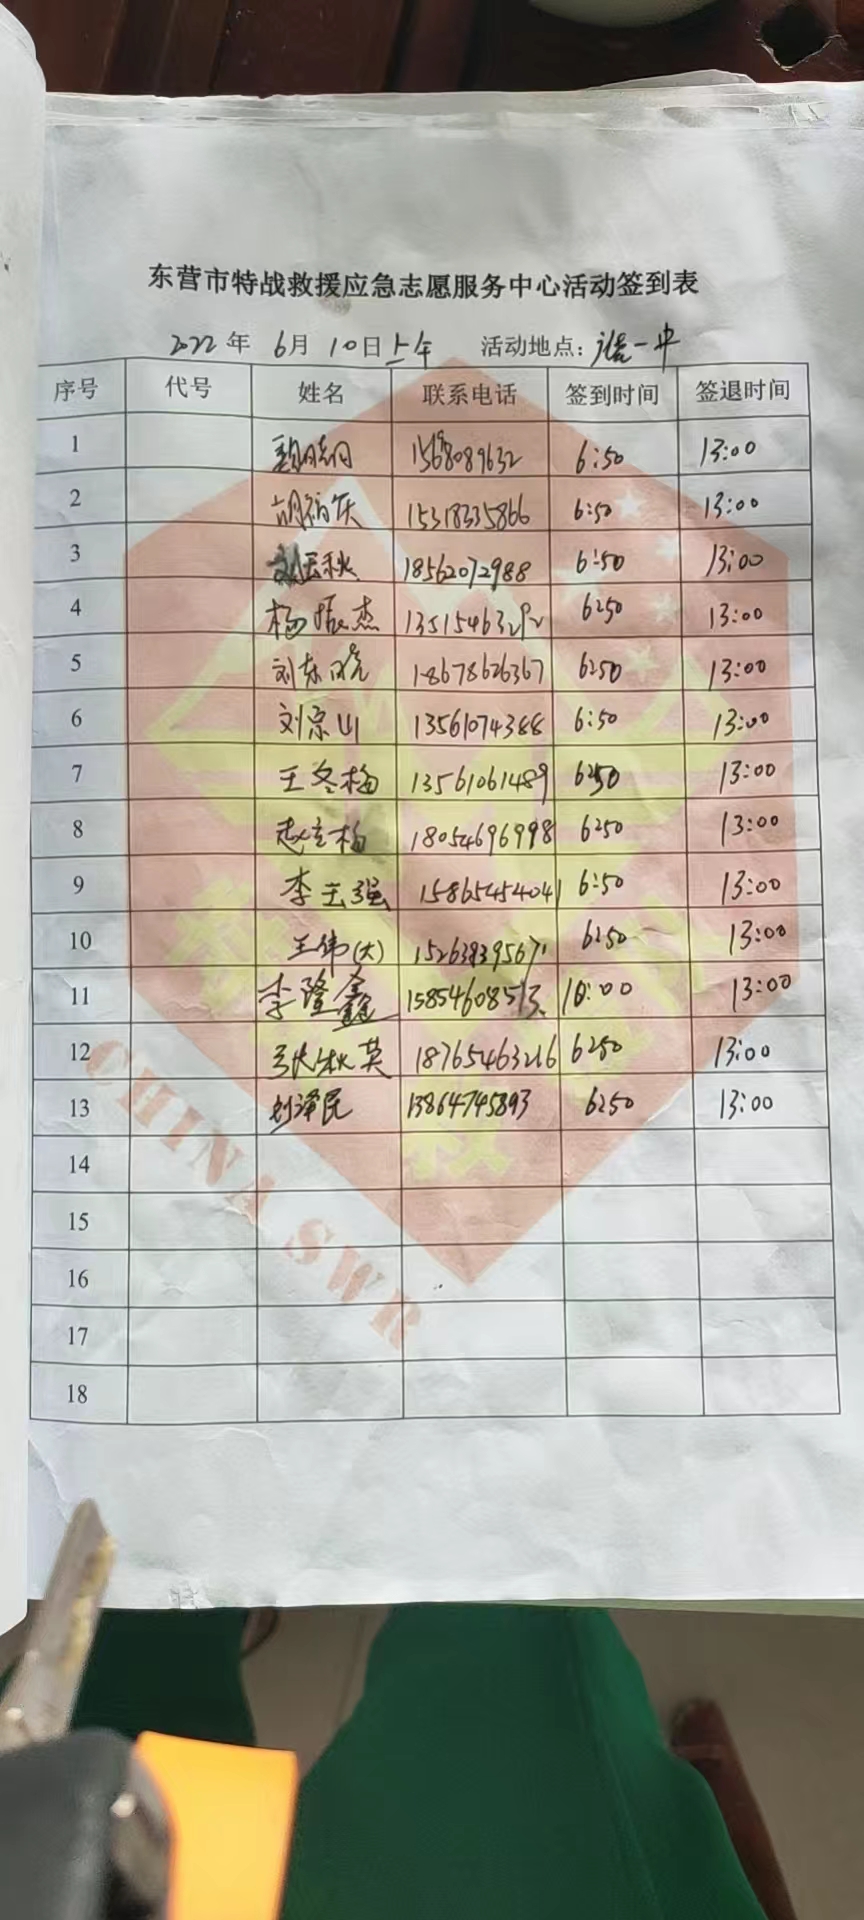 东营市特战救援应急志愿服务中心活动签到表
2022年 6月 10日上午 活动地点：一中
序号 代号 姓名 联系电话 签到时间 签退时间
1 6:50 13:00
2 胡福庆 15318335866 6:50 13:00
3 刘玉秋 18562072988 6:50 13:00
4 杨振杰 6:50 13:00
5 刘东晓 18678626367 6:50 13:00
6 刘京山 13561074388 6:50 13:00
7 王冬梅 13561061489 6:50 13:00
8 赵立梅 18054696998 6:50 13:00
9 李玉强 15865454041 6:50 13:00
10 王伟(大) 15263839567 6:50 13:00
11 李隆鑫 15854608513 10:00 13:00
12 张秋英 18765463216 6:50 13:00
13 刘泽民 13864745893 6:50 13:00
14
15
16
17
18
CHINA SWR